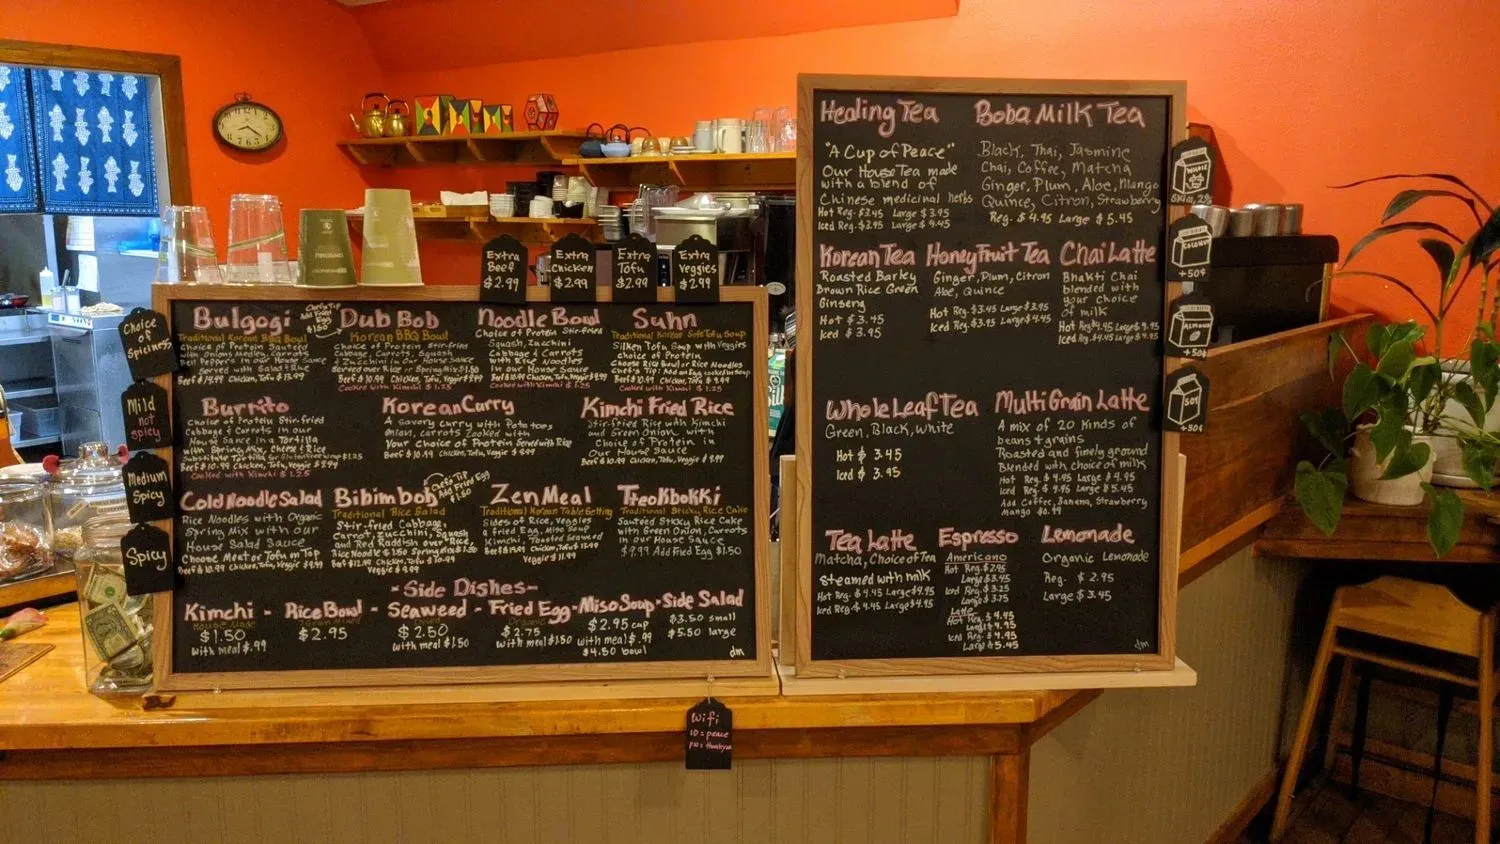 Extra Beef $2.99
Extra Chicken $2.99
Extra Tofu $2.99
Extra Veggies $2.99
Choice of Spiciness
Mild not spicy
Medium Spicy
Spicy
Bulgogi
Traditional Korean BBQ Bowl
Choice of Protein Sauteed
with Onions, Medley, Carrots
Bell Peppers in our House Sauce
Served with Salad & Rice
Chef's Tip
Add Fried
Egg
$1.50
Dub Bob
Korean BBQ Bowl
Choice of Protein stir-fried
Cabbage, Carrots, Squash
& Zucchini in our House Sauce
Served over Rice or Spring Mix $1.50
Beef $10.99 Chicken, Tofu, Veggie $9.99
Cooked with Kimchi $1.25
Noodle Bowl
Choice of Protein Stir-fried
Squash, Zucchini
Cabbage & Carrots
with Rice Noodles
in our House Sauce
Beef $10.99 Chicken, Tofu, Veggie $9.99
Cooked with Kimchi $1.25
Suhn
Traditional Korean Soft Tofu Soup
Silken Tofu Soup with Veggies
choice of Protein
Choose Rice Bowl or Rice Noodles
Chef's Tip: Add an Egg cooked in Soup
Beef $10.99 Chicken, Tofu $9.99
Cooked with Kimchi $1.25
Burrito
Choice of Protein Stir-fried
Cabbage & Carrots in our
House Sauce in a Tortilla
with Spring Mix, Cheese & Rice
Beef $10.99 Chicken, Tofu, Veggie $9.99
Cooked with Kimchi $1.25
Korean Curry
A savory curry with Potatoes
onion, carrots cooked with
Your choice of Protein Served with Rice
Beef $10.99 Chicken, Tofu, Veggie $9.99
Kimchi Fried Rice
Stir-fried Rice with Kimchi
and Green Onion with
Choice of Protein in
Our House Sauce
Beef $10.99 Chicken, Tofu, Veggie $9.99
Cold Noodle Salad
Rice Noodles with Organic
Spring Mix with our
House Salad Sauce
Choose Meat or Tofu on Top
Beef $10.99 Chicken, Tofu, Veggie $9.99
Bibimbob
Chef's Tip
Add Fried Egg
$1.50
Traditional Rice Salad
Stir-fried Cabbage,
Carrot, Zucchini, Squash
and Red Raddish over Rice,
Rice Noodle $1.50 Spring Mix $1.50
Beef $12.99 Chicken, Tofu $10.99
Veggie $9.99
Zen Meal
Traditional Korean Table Setting
Sides of Rice, Veggies
a Fried Egg, Miso Soup
Kimchi, Toasted Seaweed
Veggie $11.99
Tteokbokki
Traditional Sticky Rice Cake
Sauteed Sticky Rice Cake
with Green Onion, Carrots
in our House Sauce
$9.99 Add Fried Egg $1.50
- Side Dishes -
Kimchi - Rice Bowl - Seaweed - Fried Egg - Miso Soup - Side Salad
House Made
$1.50
with meal $.99
$2.95
$2.50
with meal $1.50
Organic
$2.75
with meal $1.50
$2.95 cup
with meal $.99
$4.50 bowl
$3.50 small
$5.50 large
dm
Wifi
ID = peace
pw = thankyou
Healing Tea
"A Cup of Peace"
Our House Tea made
with a blend of
Chinese medicinal herbs
Hot Reg. $3.45 Large $3.95
Iced Reg. $3.95 Large $4.45
Boba Milk Tea
Black, Thai, Jasmine
Chai, Coffee, Matcha
Ginger, Plum, Aloe, Mango
Quince, Citron, Strawberry
Reg. $4.95 Large $5.45
Korean Tea
Roasted Barley
Brown Rice Green
Ginseng
Hot $3.45
Iced $3.95
Honey Fruit Tea
Ginger, Plum, Citron
Aloe, Quince
Hot Reg. $3.45 Large $3.95
Iced Reg. $3.95 Large $4.45
Chai Latte
Bhakti Chai
blended with
your choice
of milk
Hot Reg $4.45 Large $4.95
Iced Reg. $4.95 Large $5.45
Whole Leaf Tea
Green, Black, White
Hot $3.45
Iced $3.95
Multi Grain Latte
A mix of 20 kinds of
beans + grains
Roasted and finely ground
Blended with choice of milks
Hot Reg. $4.45 Large $4.95
Iced Reg. $4.95 Large $5.45
Add Coffee, Banana, Strawberry
Mango $0.99
Tea Latte
Matcha, Choice of Tea
steamed with milk
Hot Reg. $4.45 Large $4.95
Espresso
Americano
Hot Reg. $2.95
Large $3.45
Iced Reg. $3.25
Large $3.75
Latte
Hot Reg. $4.45
Large $4.95
Iced Reg. $4.95
Large $5.45
Lemonade
Organic Lemonade
Reg. $2.95
Large $3.45
dm
WHOLE
COCONUT
+50¢
ALMOND
+50¢
SOY
+50¢